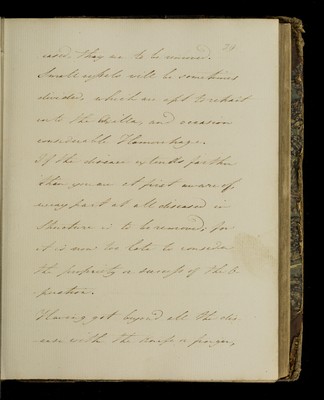 79
eased. they are to be removed.
Small vessels will be sometimes
divided, which are apt to retract
into the Axilla, and occasion
considerable Hemorrhage.
If the disease extends farther
than you are at first aware of,
every part at all diseased in
Structure is to be removed, for
it is now too late to consider
the propriety or success of the O-
peration.
Having got beyond all the dis-
ease with the knife or finger,